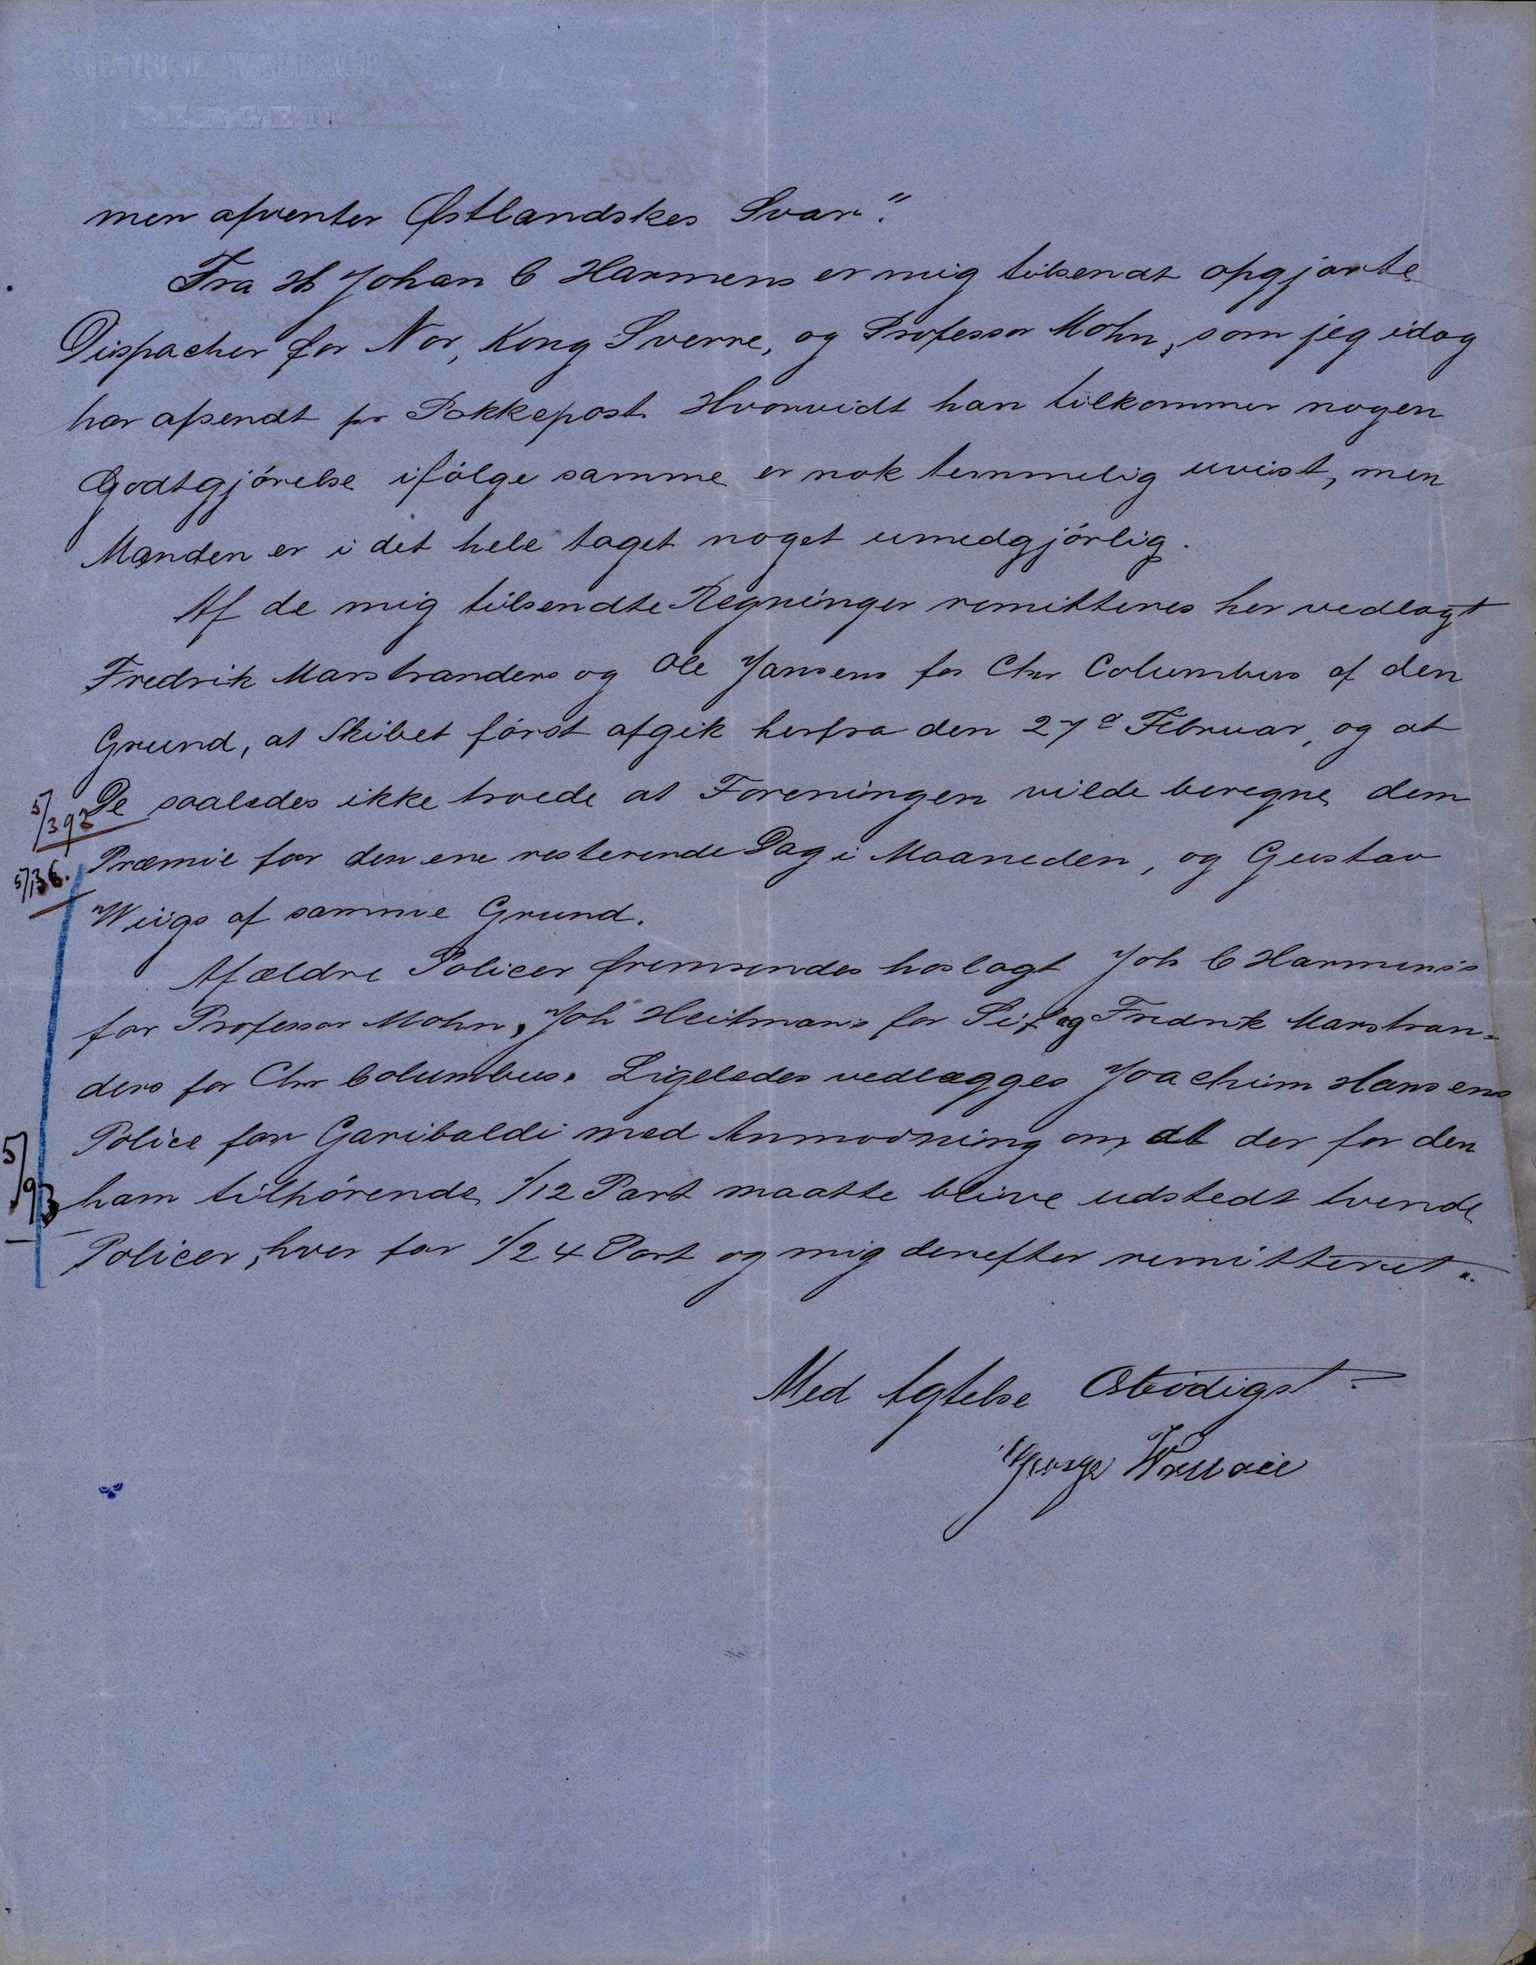 men afventer Østlandskes Svar."
Fra Hr Johan C Harmens er mig tilsendt opgjorte
Dispacher for Nor, Kong Sverre, og Professor Mohn, som jeg idag
har afsendt pr Pakkepost. Hvorvidt han tilkommer nogen
Godtgjörelse ifölge samme er nok temmelig uvist, men
Manden er i det hele taget noget umedgjörlig.
Af de mig tilsendte Regninger remitteres her vedlagt
Fredrik Marstranders og Ole Jansens for Chr Columbus af den
Grund, at Skibet först afgik herfra den 27d Februar, og at
De saaledes ikke troede at Foreningen vilde beregne dem
5/392
Præmie for den ene resterende Dag i Maaneden, og Gustav
5/136.
Wiigs af samme Grund.
Af ældre Policer fremsendes hoslagt Joh C Harmens's
for Professor Mohn, Joh Heitmans for Sif og Fredrik Marstran=
ders for Chr Columbus. Ligeledes vedlægges Joachim Hansens
Police for Garibaldi med Anmodning om, at der for den
5/93
ham tilhörende 1/12 Part maatte blive udstedt tvende
Policer, hver for 1/24 Part og mig derefter remitteret.
Med Agtelse Ærbödigst
George Wallace